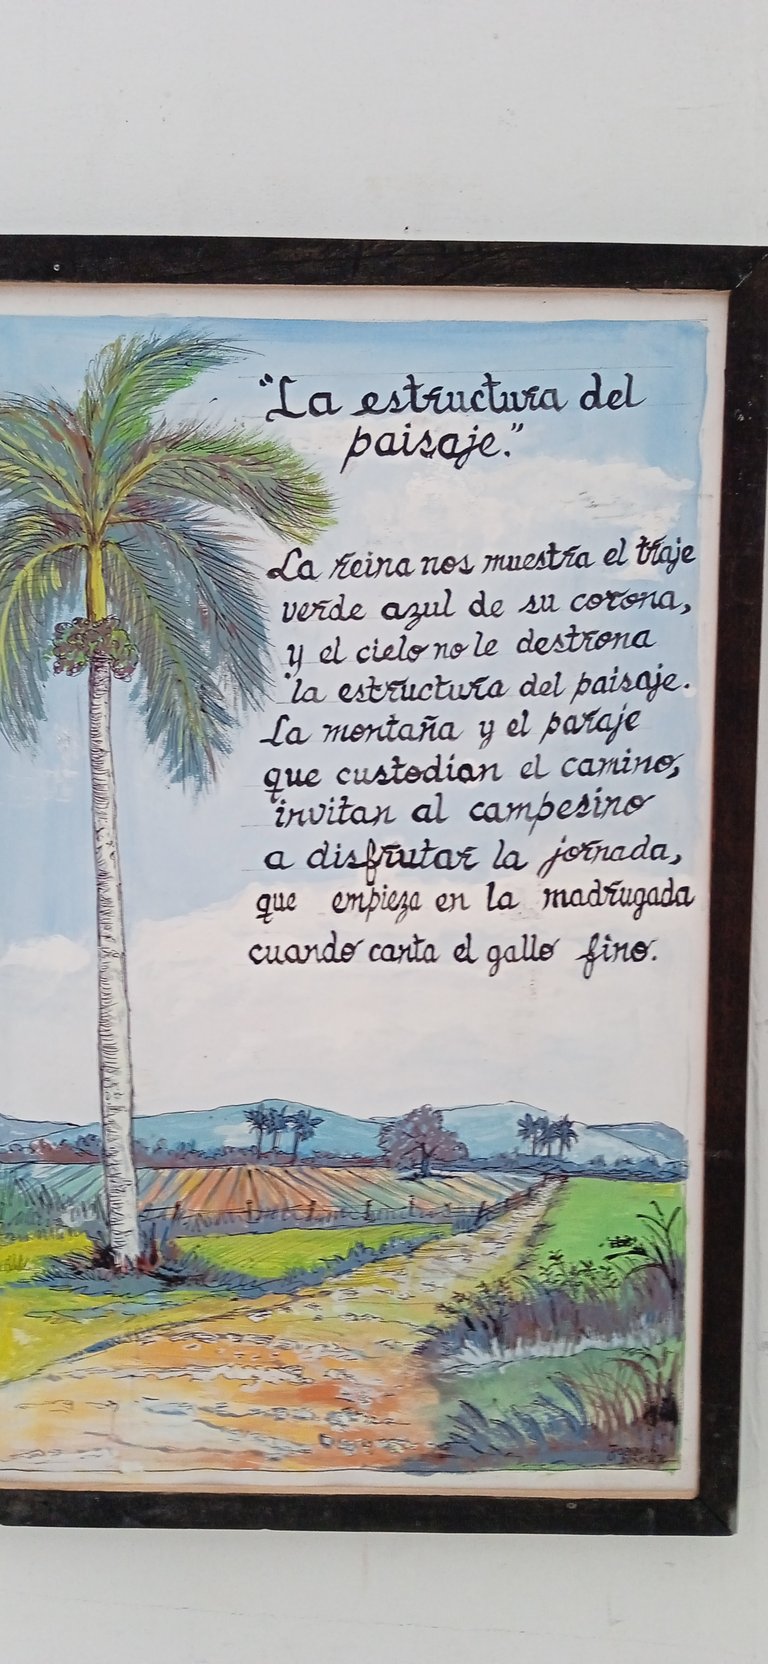 "La estructura del
paisaje."
La reina nos muestra el traje
verde azul de su corona,
y el cielo no le destrona
"la estructura del paisaje.
La montaña y el paraje
que custodian el camino,
invitan al campesino
a disfrutar la jornada,
que empieza en la madrugada
cuando canta el gallo fino.